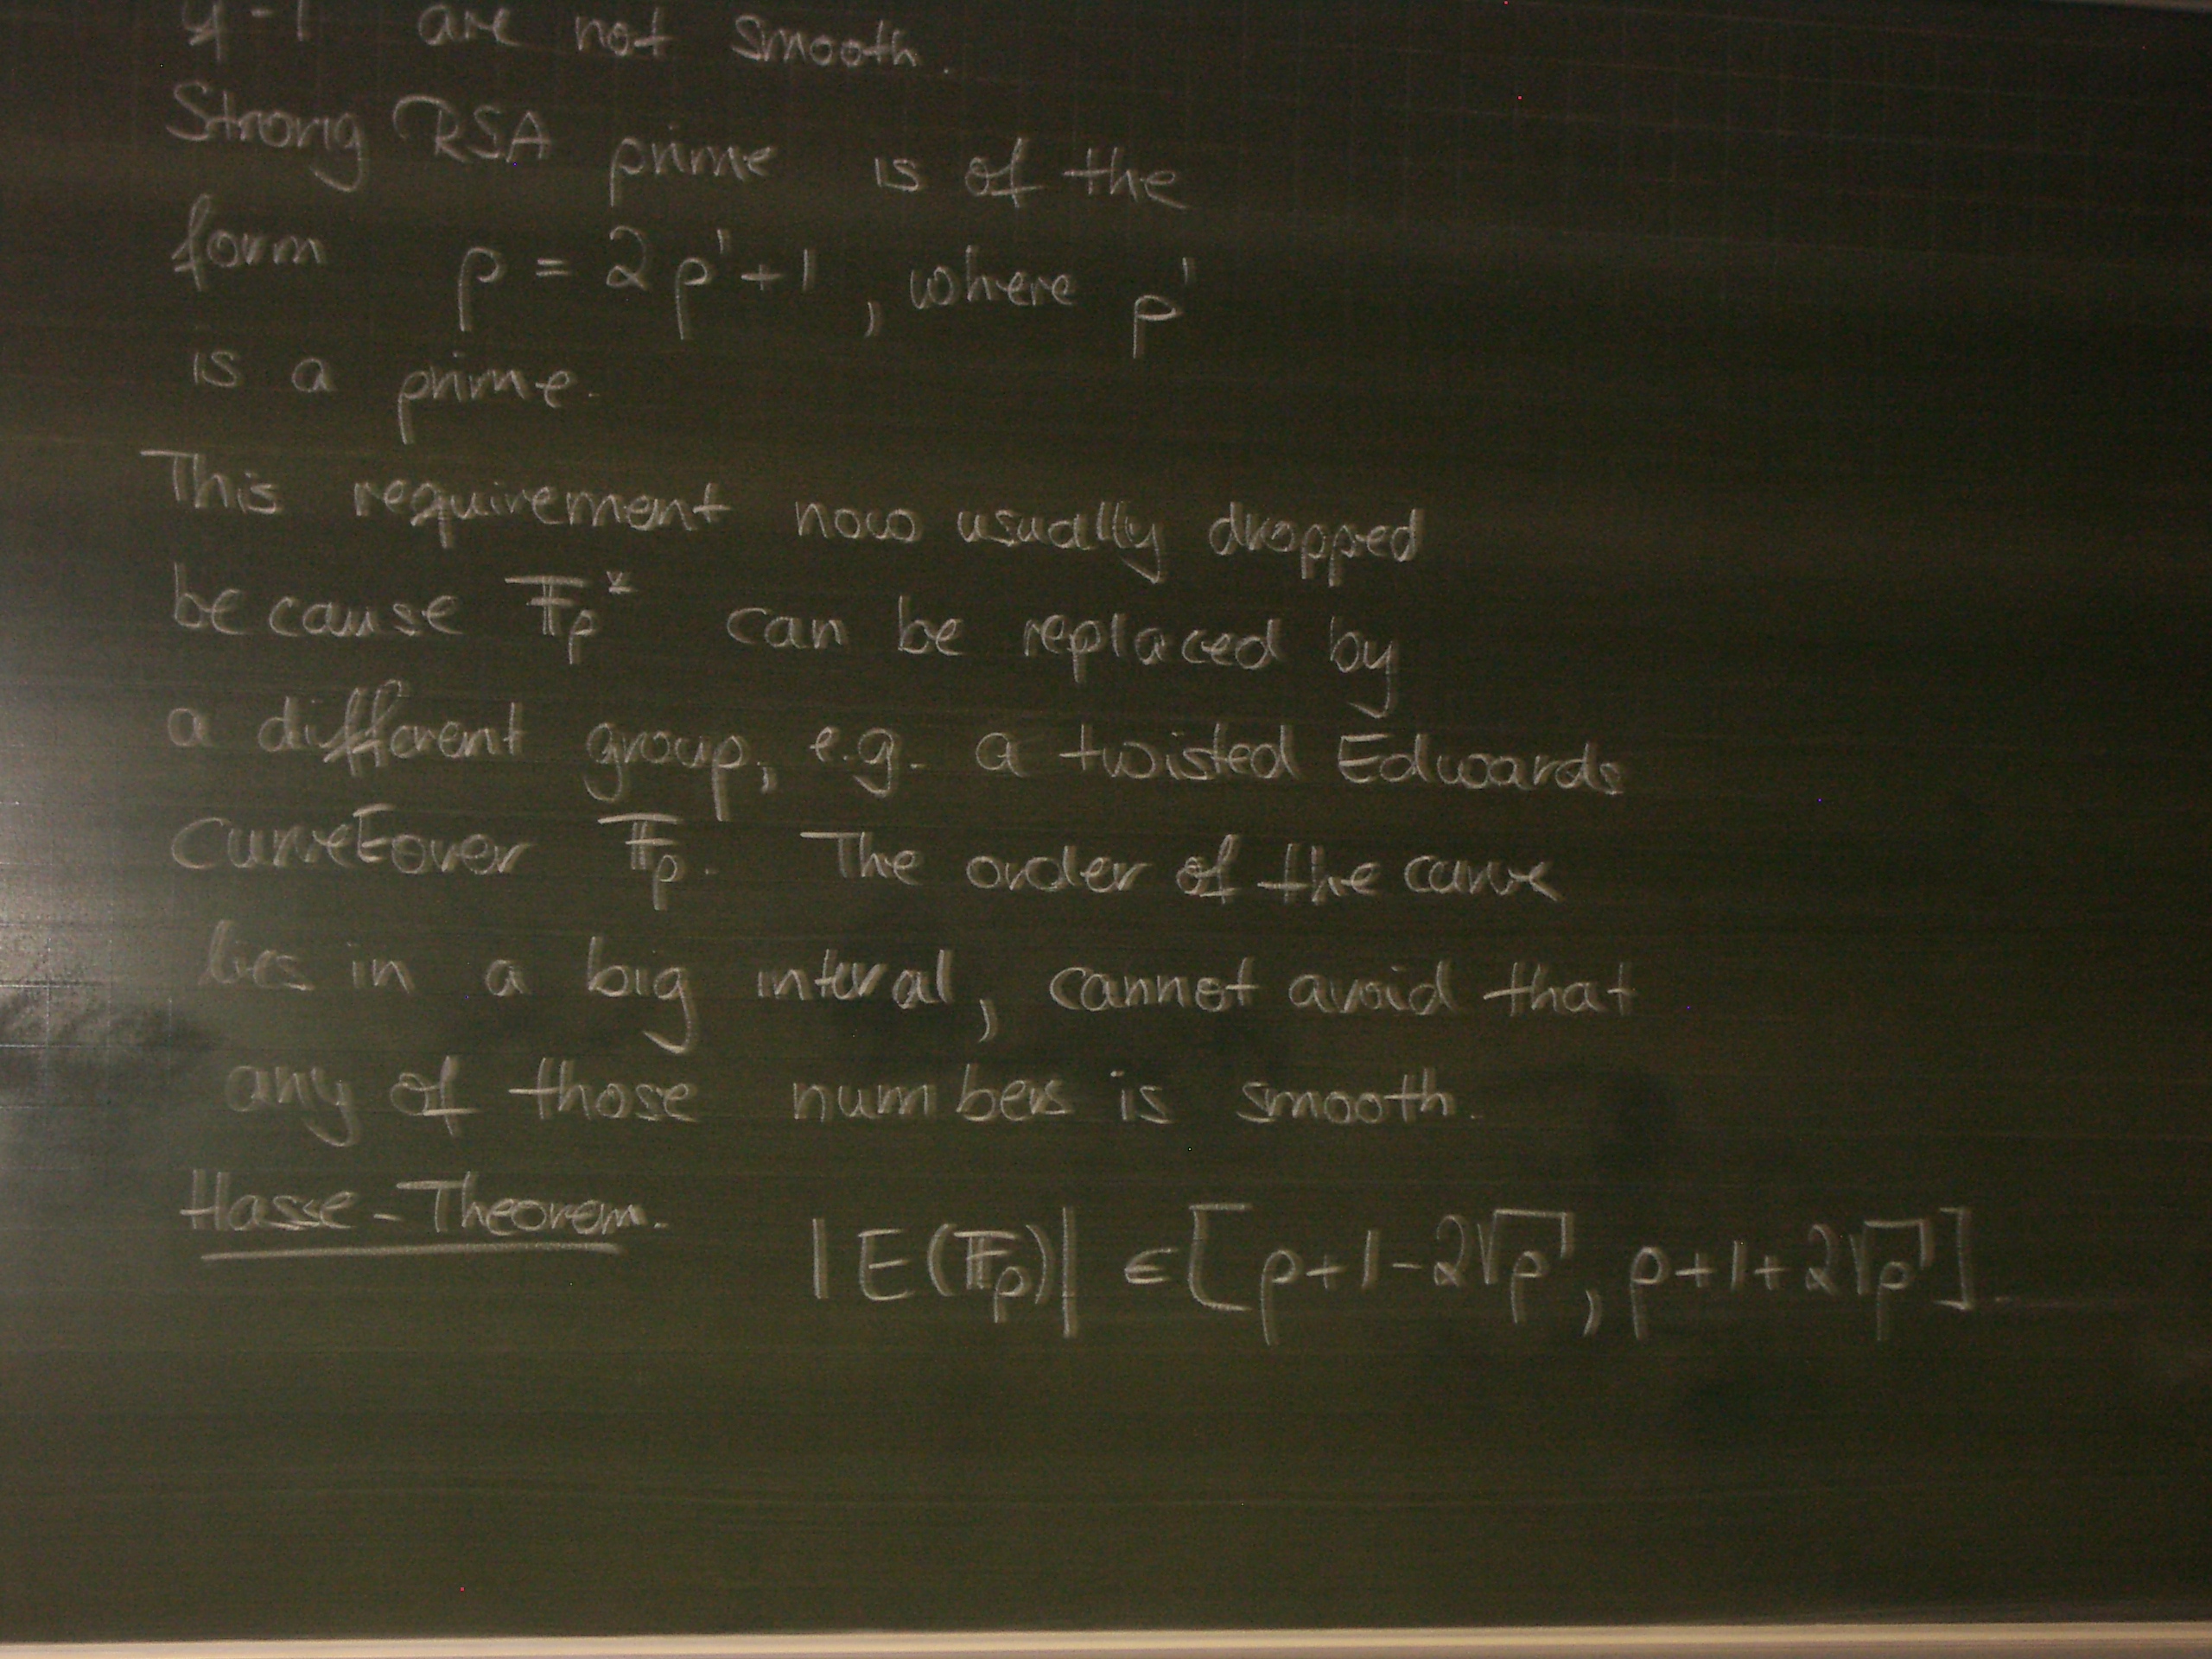 q-1 are not smooth.
Strong RSA prime is of the
form p = 2p'+1, where p'
is a prime.
This requirement now usually dropped
because 𝔽ₚ* can be replaced by
a different group, e.g. a twisted Edwards
curve E over 𝔽ₚ. The order of the curve
lies in a big interval, cannot avoid that
any of those numbers is smooth.
Hasse-Theorem. |E(𝔽ₚ)| ∈ [p+1-2√p, p+1+2√p]